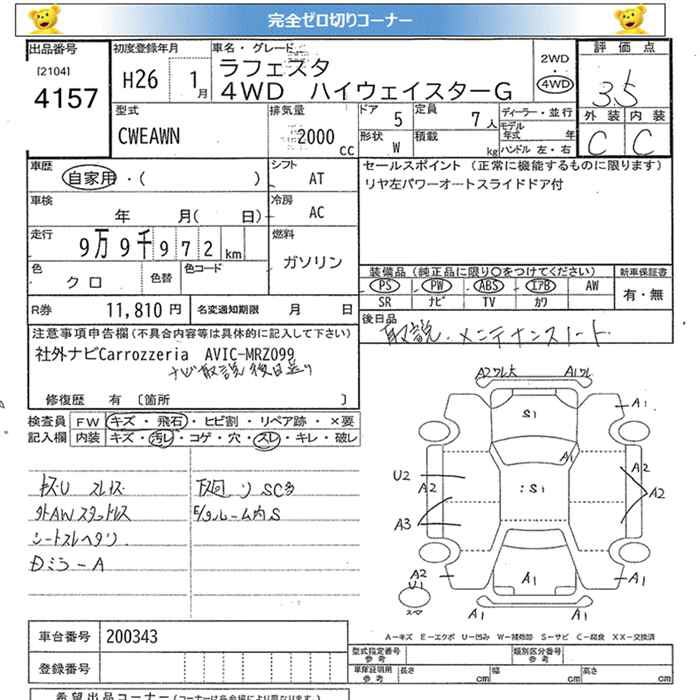 完全ゼロ切りコーナー
出品番号 初度登録年月 車名・グレード 評価点
[2104] 4157 H26 1月 ラフェスタ
4WD ハイウェイスターG 2WD・4WD 3.5
型式 CWEAWN 排気量 2000cc ドア 5 定員 7人 ディーラー・並行 外装 内装
モデル年式 年 C C
形状 W 積載 kg ハンドル 左・右
車歴 自家用・( ) シフト AT セールスポイント (正常に機能するものに限ります)
リヤ左パワーオートスライドドア付
車検 年 月( 日) 冷房 AC
走行 9万9千972km 燃料 ガソリン
色 クロ 色替 色コード 装備品(純正品に限り〇をつけてください) 新車保証書
PS PW ABS エアB AW 有・無
SR ナビ TV カワ
R券 11,810円 名変通知期限 月 日 後日品
取説、メンテナンスノート
注意事項申告欄(不具合内容等は具体的に記入して下さい)
社外ナビCarrozzeria AVIC-MRZ099
ナビ取説後日送り
修復歴 有 [箇所 ]
検査員記入欄 FW キズ・飛石・ヒビ割・リペア跡・×要
内装 キズ・汚レ・コゲ・穴・スレ・キレ・破レ
キズU スレキズ
外AWスタッドレス
シートスレヘタリ
Dミラ-A
下廻リSC多
A2ワレ大 A1ワレ
S1 A1
A1
U2 A2 :S1 A2 A2
A3
A2 U スマ A1 A1 A1
A1 A1
A-キズ E-エクボ U-凹み W-補修跡 S-サビ C-腐食 XX-交換済
車台番号 200343
型式指定番号 参考 類別区分番号 参考
登録番号
車庫証明用 参考 長さ cm 幅 cm 高さ cm
希望出品コーナー(コーナーは各会場により異なります)